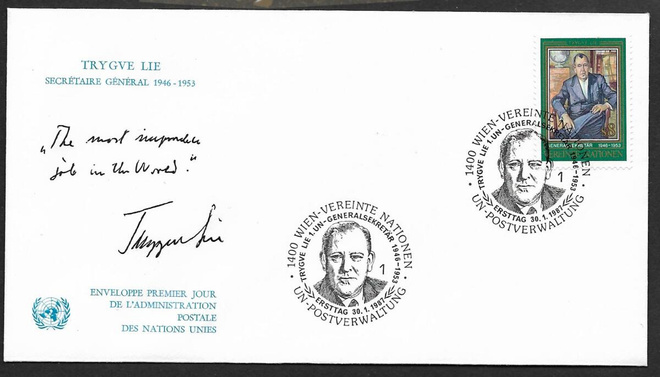 TRYGVE LIE
SECRÉTAIRE GÉNÉRAL 1946-1953
„The most impossible
job in the World."
Trygve Lie
ENVELOPPE PREMIER JOUR
DE L'ADMINISTRATION
POSTALE
DES NATIONS UNIES
1400 WIEN-VEREINTE NATIONEN
TRYGVE LIE 1. UN-GENERALSEKRETÄR 1946-1953
1
ERSTTAG 30.1.1987
UN-POSTVERWALTUNG
1400 WIEN-VEREINTE NATIONEN
TRYGVE LIE 1. UN-GENERALSEKRETÄR 1946-1953
1
ERSTTAG 30.1.1987
UN-POSTVERWALTUNG
S8
GENERALSEKRETÄR 1946-1953
VEREINTE NATIONEN